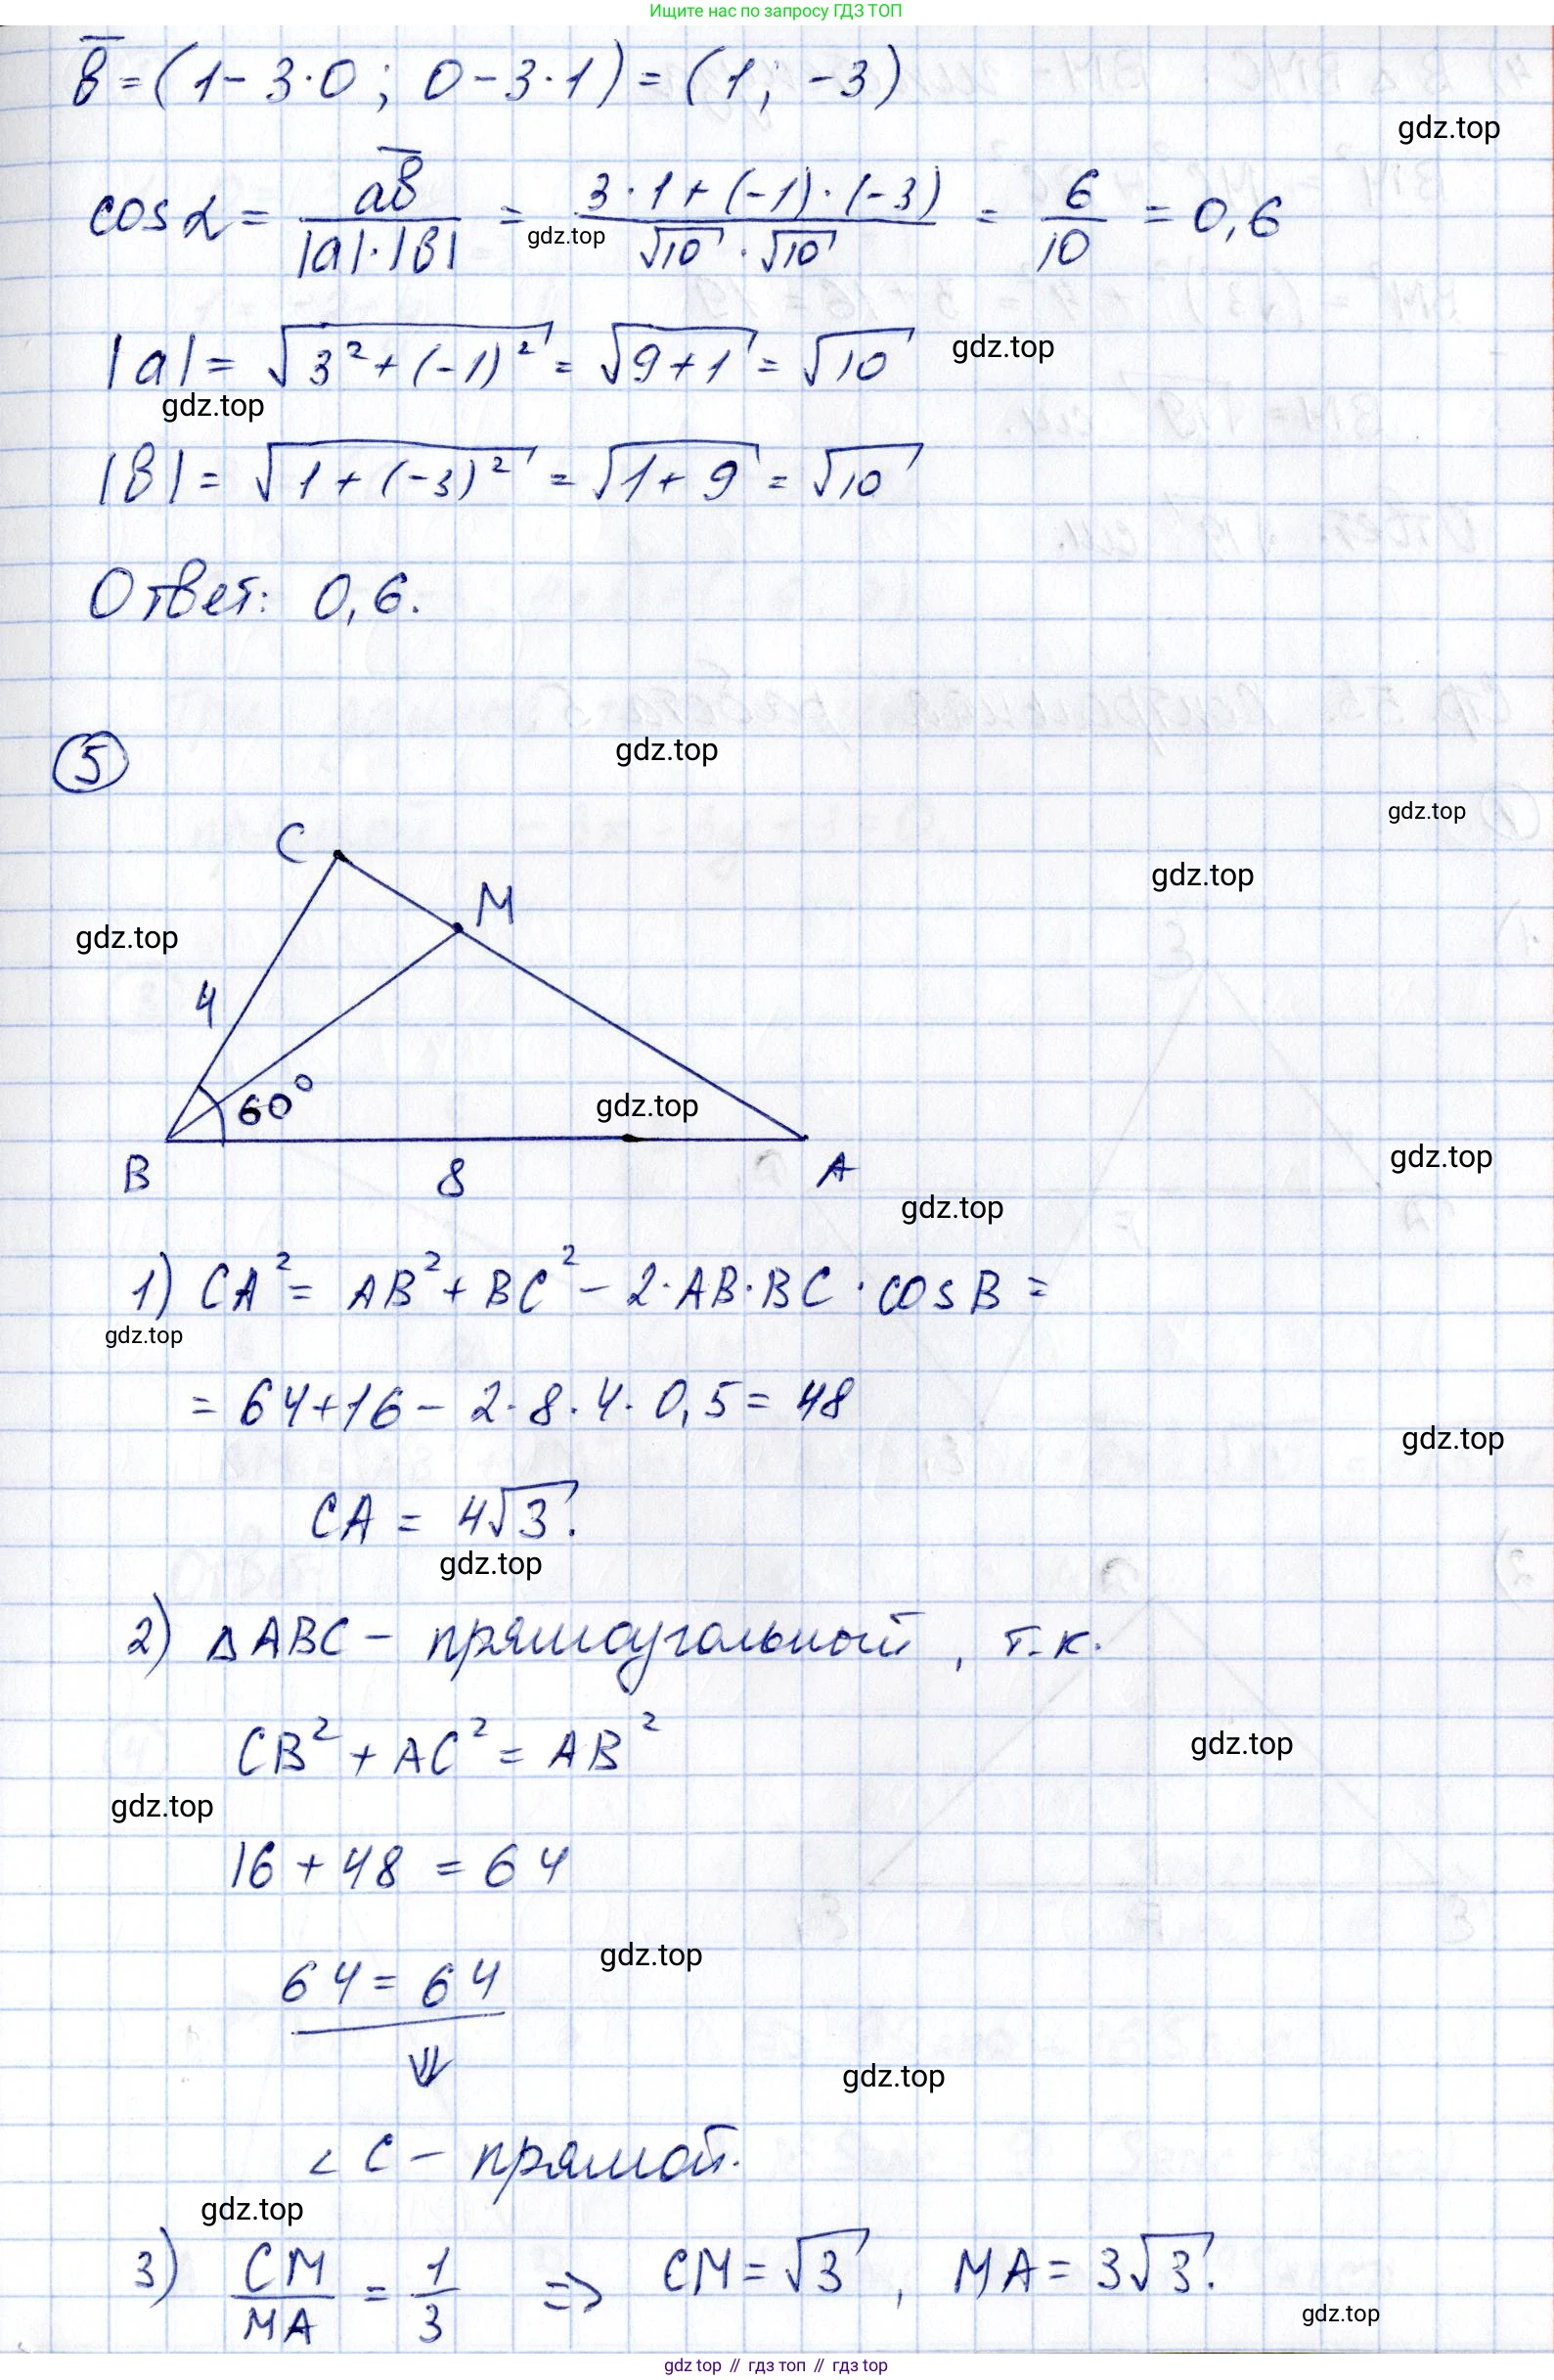 Ищите нас по запросу ГДЗ ТОП
b̄ = (1 - 3·0 ; 0 - 3·1) = (1; -3)
gdz.top
cos α = ab̄ / |a|·|b| = 3·1 + (-1)·(-3) / √10 · √10 = 6/10 = 0,6
gdz.top
|a| = √3² + (-1)² = √9+1 = √10
gdz.top
gdz.top
|b| = √1 + (-3)² = √1+9 = √10
Ответ: 0,6.
5
gdz.top
gdz.top
C
gdz.top
M
gdz.top
4
60°
gdz.top
gdz.top
B 8 A
gdz.top
1) CA² = AB² + BC² - 2·AB·BC·cos B =
gdz.top
= 64+16 - 2·8·4·0,5 = 48
gdz.top
CA = 4√3.
gdz.top
2) △ABC - прямоугольный, т.к.
CB² + AC² = AB²
gdz.top
gdz.top
16 + 48 = 64
gdz.top
64 = 64
⇓
gdz.top
∠C - прямой.
gdz.top
3) CM/MA = 1/3 => CM = √3, MA = 3√3.
gdz.top
gdz top // гдз топ // гдз top